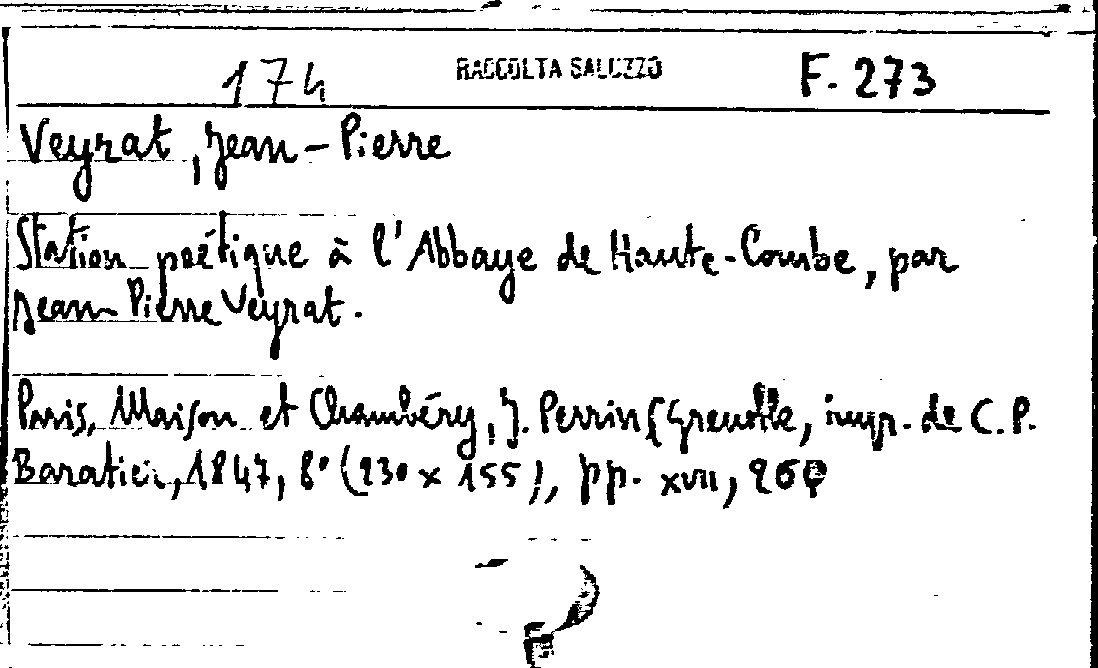 174 RACCOLTA SALUZZO F. 273
Veyrat, Jean-Pierre
Station poétique à l'Abbaye de Haute-Combe, par
Jean Pierre Veyrat.
Paris, Maison et Chambéry, J. Perrin (Grenoble, impr. de C.P.
Baratier, 1847, 8° (230 x 155), pp. XVII,